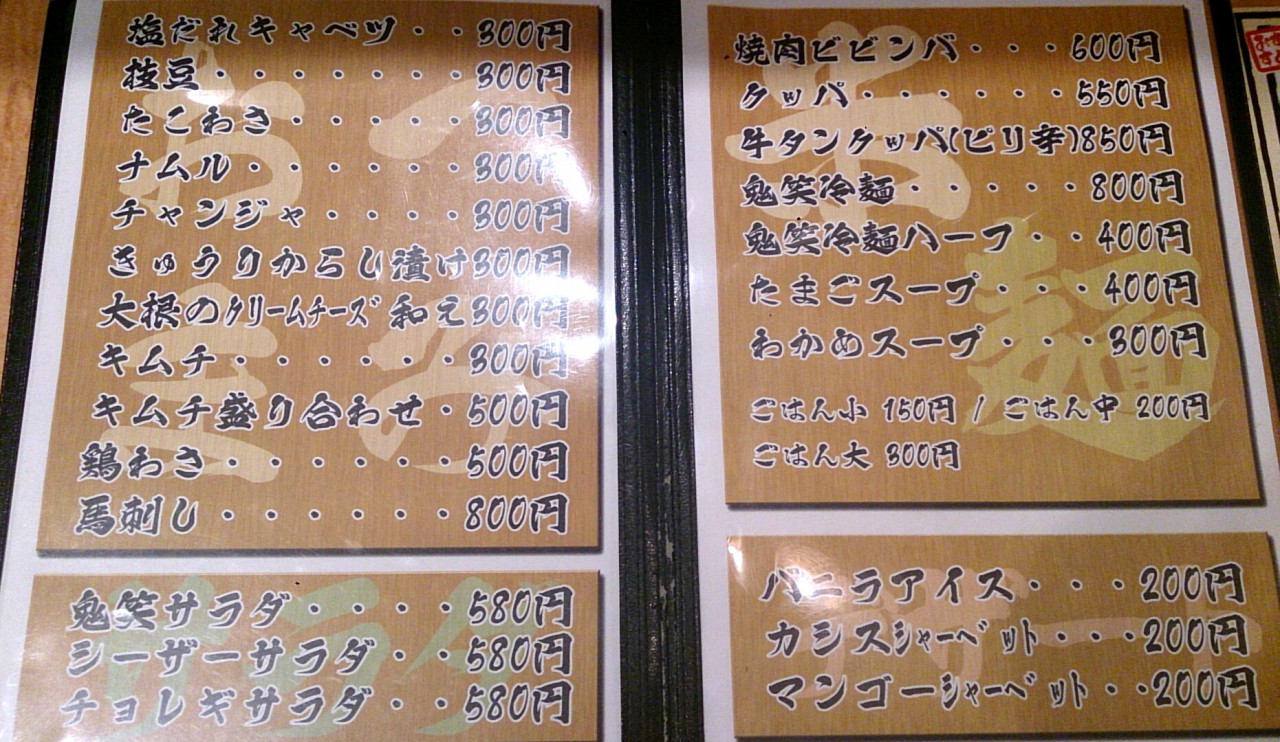 おつまみ
塩だれキャベツ・・300円
枝豆・・・・・・・・300円
たこわさ・・・・・300円
ナムル・・・・・・300円
チャンジャ・・・・300円
きゅうりからし漬け300円
大根のクリームチーズ和え300円
キムチ・・・・・・300円
キムチ盛り合わせ・500円
鶏わさ・・・・・・500円
馬刺し・・・・・・800円
サラダ
鬼笑サラダ・・・・580円
シーザーサラダ・・580円
チョレギサラダ・・580円
米
麺
焼肉ビビンバ・・・600円
クッパ・・・・・・550円
牛タンクッパ(ピリ辛)850円
鬼笑冷麺・・・・・800円
鬼笑冷麺ハーフ・・400円
たまごスープ・・・400円
わかめスープ・・・300円
ごはん小 150円 / ごはん中 200円
ごはん大 300円
デザート
バニラアイス・・・200円
カシスシャーベット・・・200円
マンゴーシャーベット・・200円